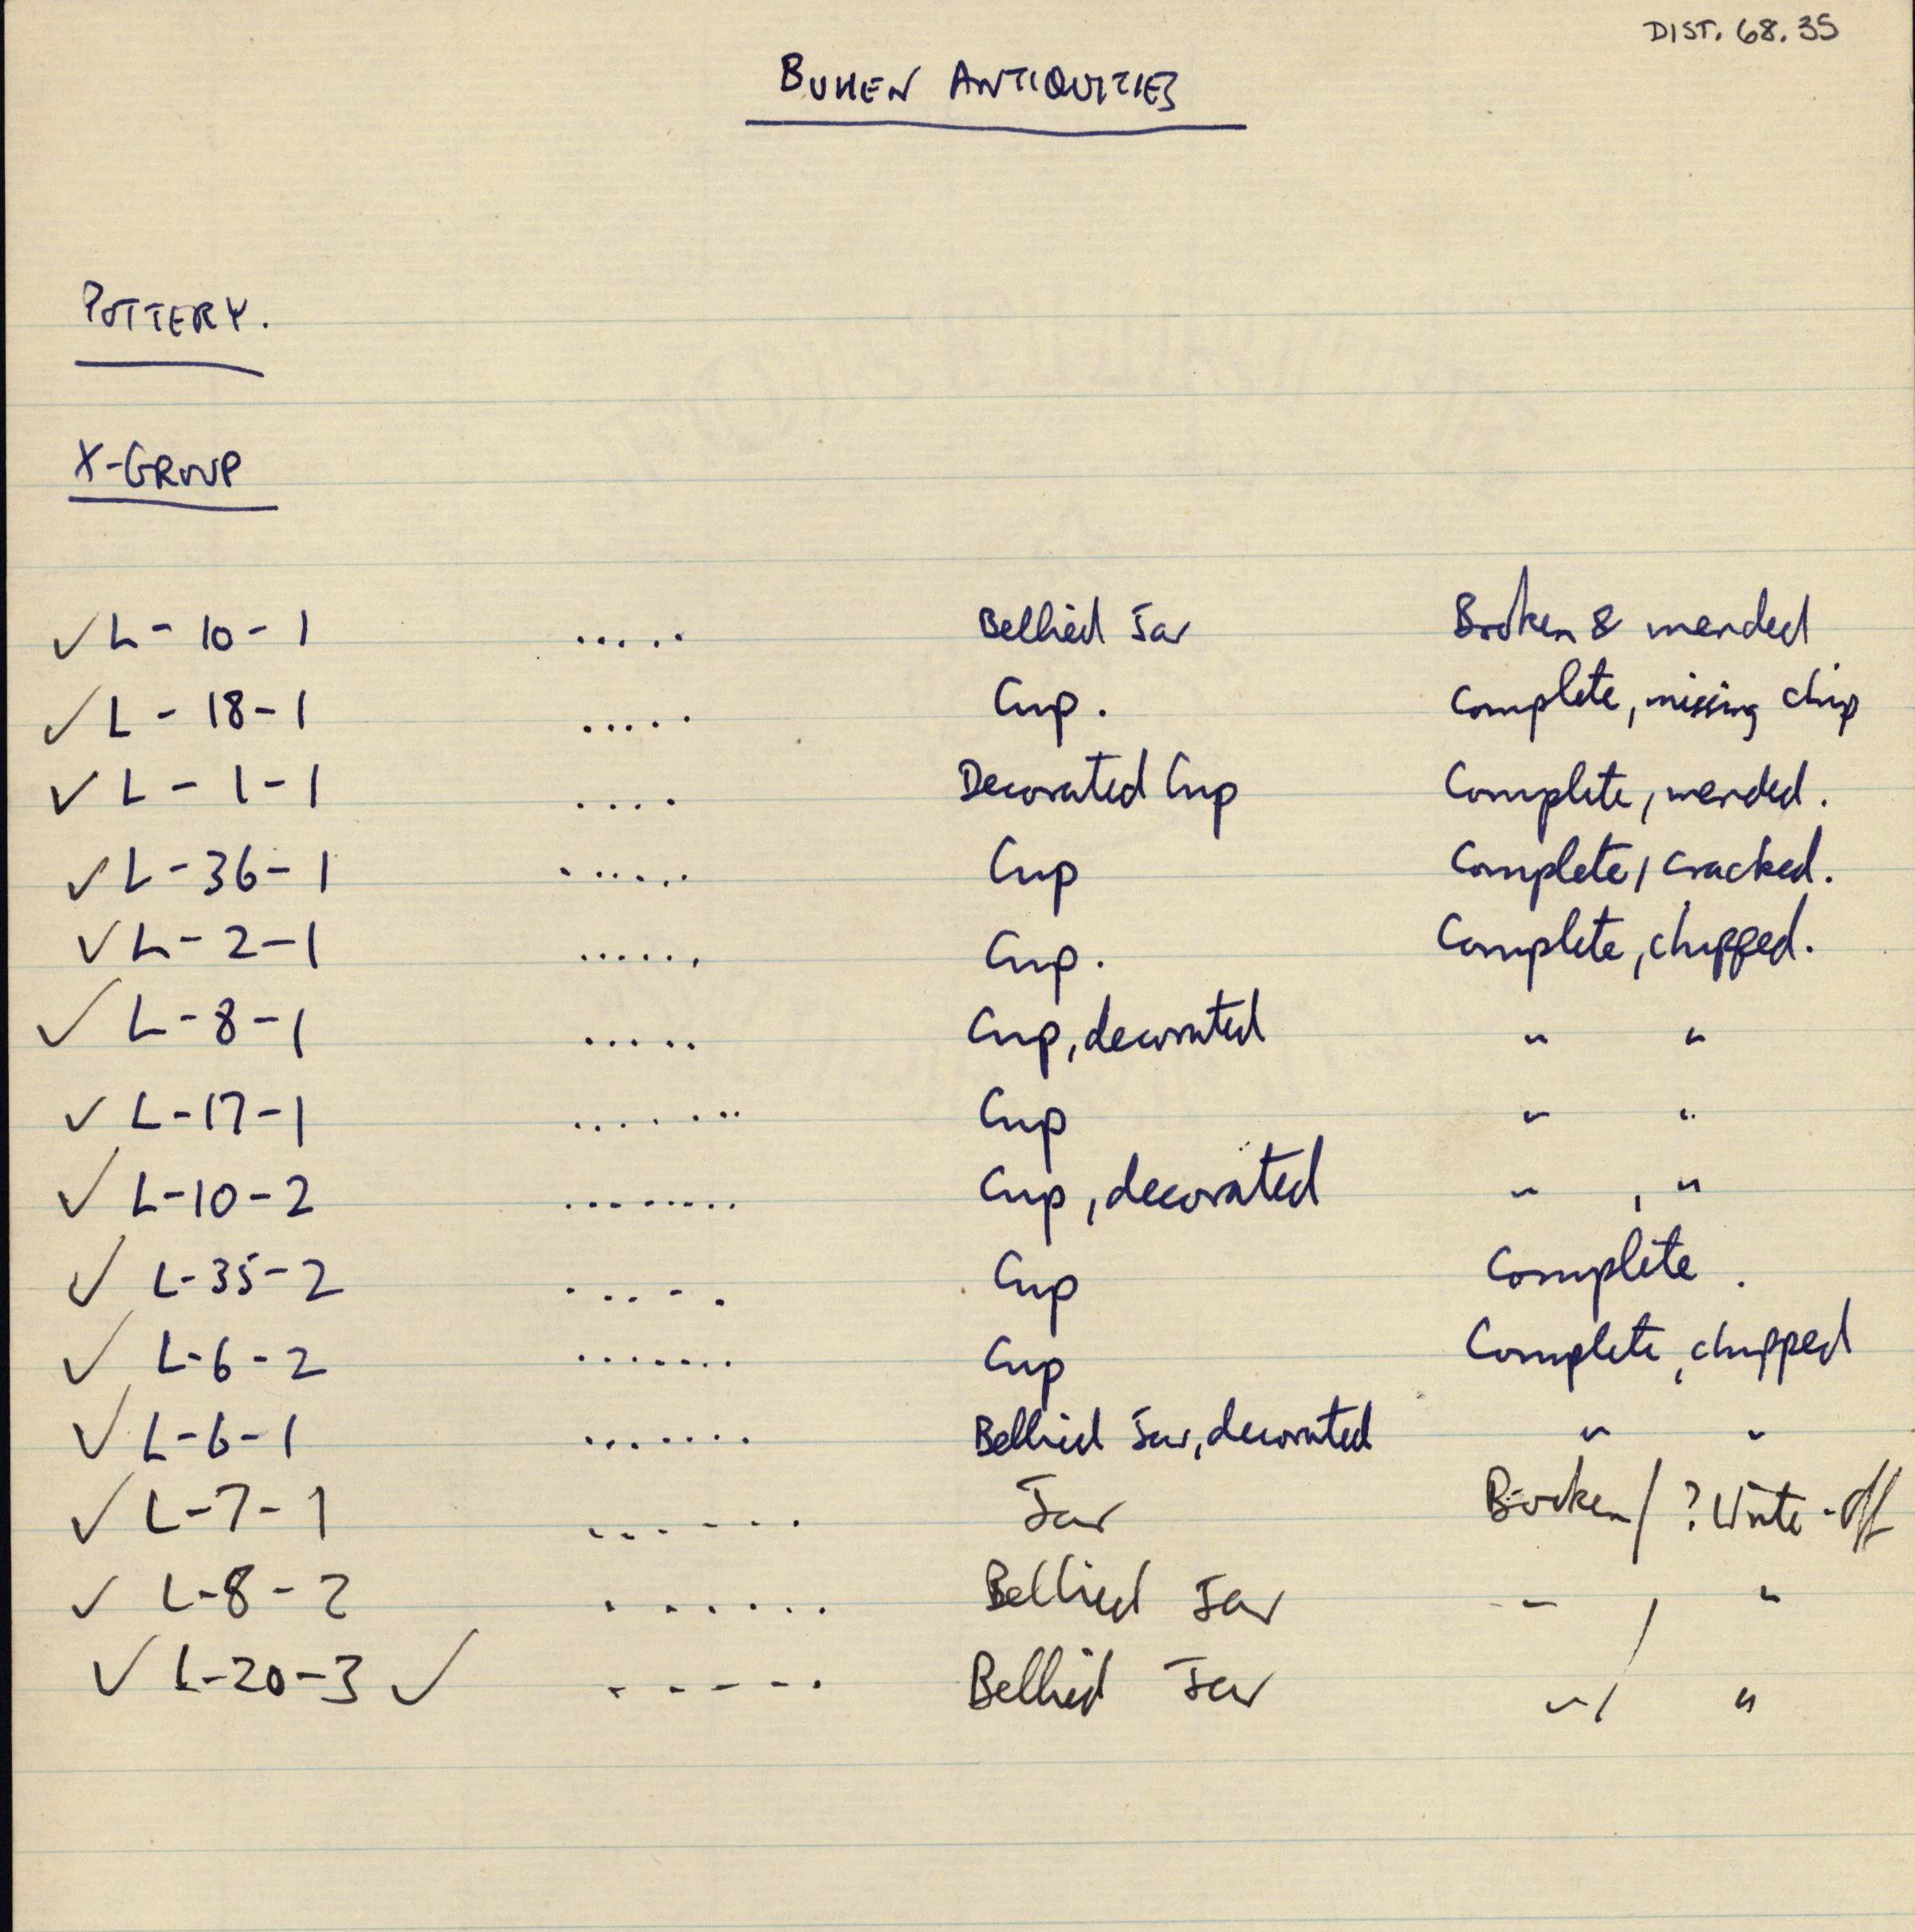 DIST. 68.35
BUHEN ANTIQUITIES
POTTERY.
X-GROUP
✓ L - 10 - 1 ..... Bellied Jar Broken & mended
✓ L - 18 - 1 ..... Cup. Complete, missing chip
✓ L - 1 - 1 .... Decorated Cup Complete, mended.
✓ L - 36 - 1 ...... Cup Complete, cracked.
✓ L - 2 - 1 ...... Cup. Complete, chipped.
✓ L - 8 - 1 ..... Cup, decorated " "
✓ L - 17 - 1 ....... Cup " "
✓ L - 10 - 2 ........ Cup, decorated " , "
✓ L - 35 - 2 ..... Cup Complete.
✓ L - 6 - 2 ....... Cup Complete, chipped
✓ L - 6 - 1 ....... Bellied Jar, decorated " "
✓ L - 7 - 1 ...... Jar Broken / ? Write-off
✓ L - 8 - 2 ...... Bellied Jar " / "
✓ L - 20 - 3 ✓ ..... Bellied Jar " / "